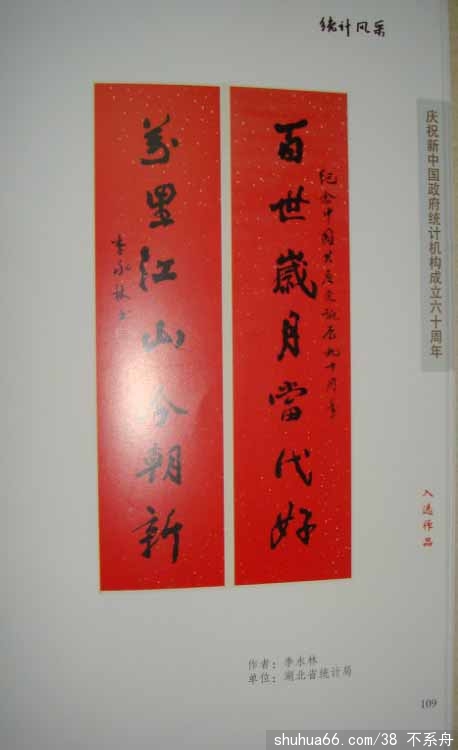 统计风采
庆祝新中国政府统计机构成立六十周年
百世歲月當代好
纪念中国共产党诞辰九十周年
萬里江山今朝新
李永林书
入选作品
作者：李永林
单位：湖北省统计局
109
shuhua66.com/38 不系舟